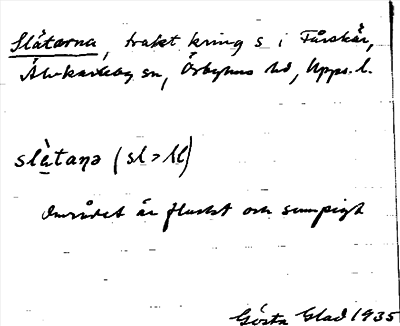 Slåtarna, trakt kring s i Fårskär,
Älvkarleby sn, Örbyhus hd, Upps. l.
slàtaŋə (sl > ɬl)
Området är flackt och sumpigt
Gösta Glad 1935